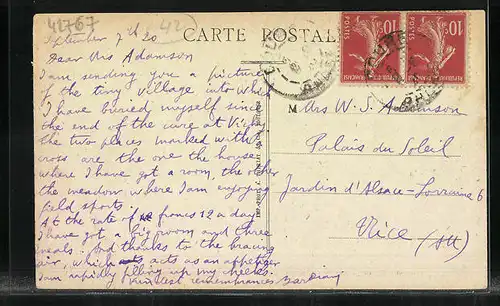 42767
42
September 7th 20
CARTE POSTALE
Dear Mrs Adamson
I am sending you a picture
of the tiny village into which
I have buried myself since
the end of the cure at Vichy
the two places marked with
cross are the one the house
where I have got a room, the other
the meadow where I am enjoying
field sports.
At the rate of francs 12 a day
I have got a big room and three
meals. And thanks to the bracing
air, which acts as an appetizer
I am rapidly filling up my cheeks.
Kindest remembrances
10c 10c
POSTES
M
Mrs W. S. Adamson
Palais du Soleil
Jardin d'Alsace-Lorraine 6
Nice (AM)